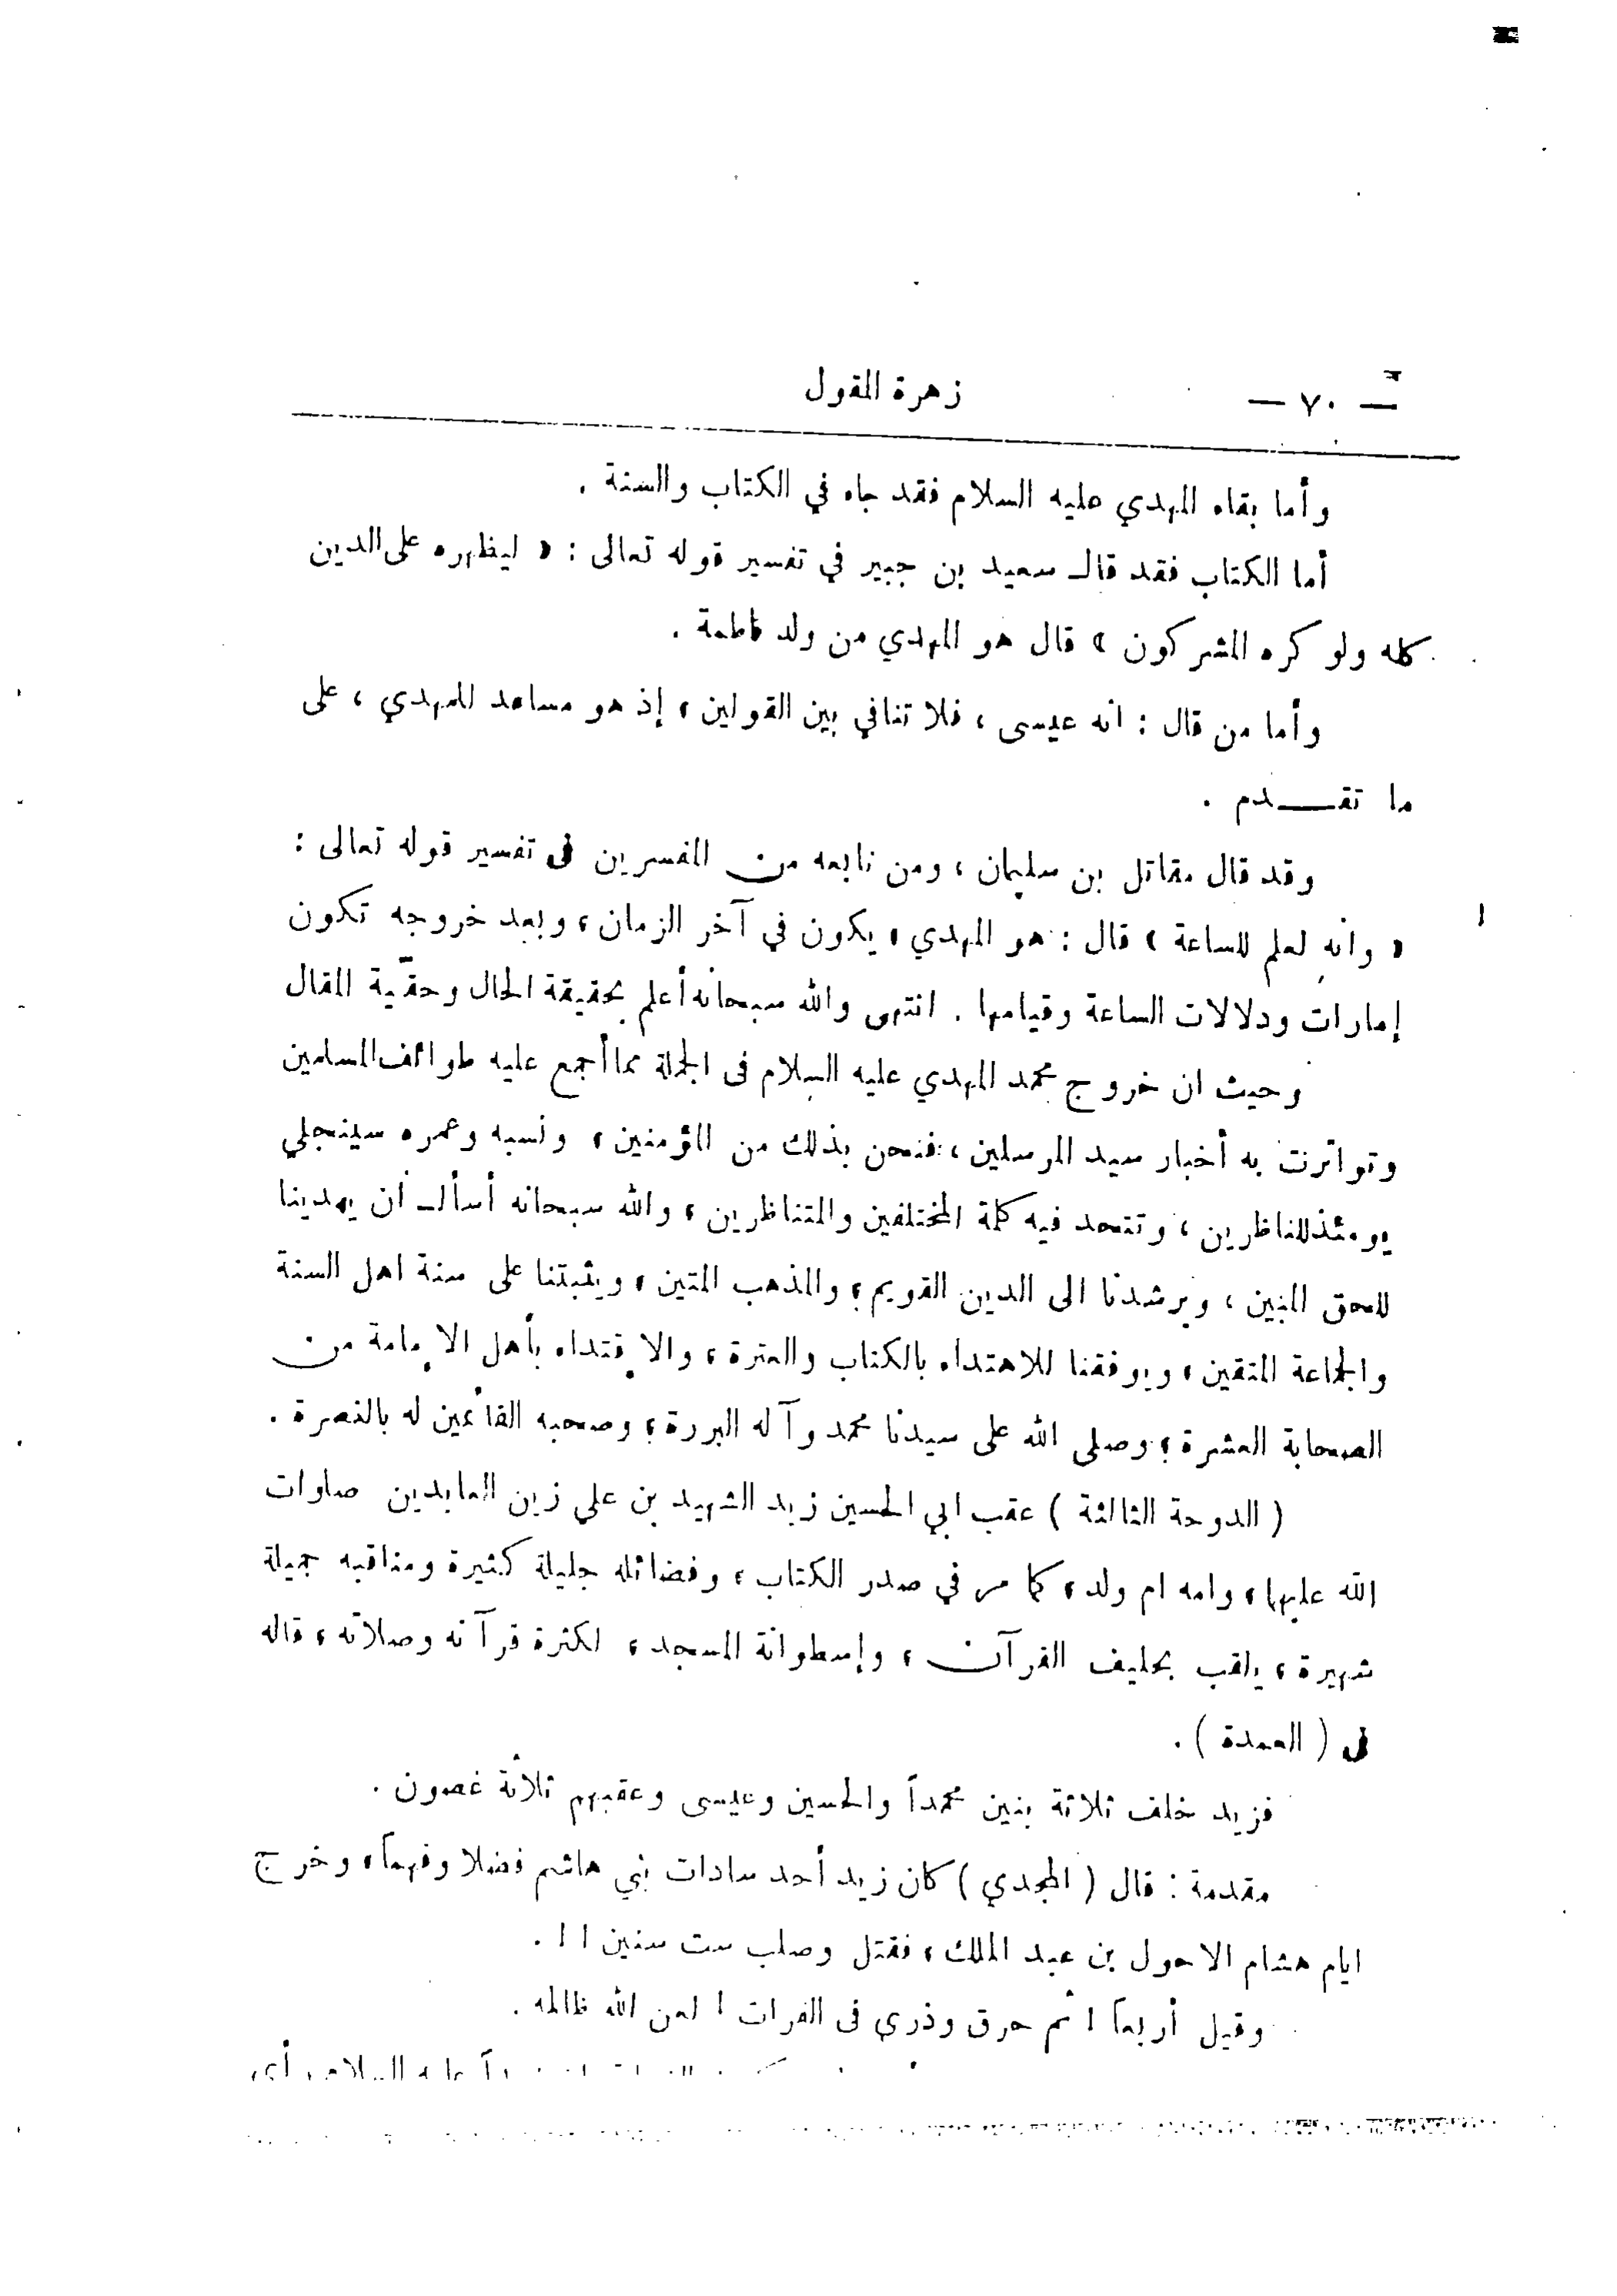 — ٧٠ — زهرة المقول
وأما بقاء المهدي عليه السلام فقد جاء في الكتاب والسنة .
أما الكتاب فقد قال سعيد بن جبير في تفسير قوله تعالى : « ليظهره على الدين
كله ولو كره المشركون » قال هو المهدي من ولد فاطمة .
وأما من قال : انه عيسى ، فلا تنافي بين القولين ، إذ هو مساعد للمهدي ، على
ما تقـــدم .
وقد قال مقاتل بن سليمان ، ومن تابعه من المفسرين فى تفسير قوله تعالى :
« وانه لعلم للساعة » قال : هو المهدي ، يكون في آخر الزمان ، وبعد خروجه تكون
إمارات ودلالات الساعة وقيامها . انتهى والله سبحانه أعلم بحقيقة الحال وحقّية المقال
وحيث ان خروج محمد المهدي عليه السلام فى الجملة مما أجمع عليه طوائف المسلمين
وتواترت به أخبار سيد المرسلين ، فنحن بذلك من المؤمنين ، ونسبه وعمره سينجلي
يومئذ للناظرين ، وتتحد فيه كلمة المختلفين والمتناظرين ، والله سبحانه أسأل أن يهدينا
للحق المبين ، ويرشدنا الى الدين القويم ، والمذهب المتين ، ويثبتنا على سنة اهل السنة
والجماعة المتقين ، ويوفقنا للاهتداء بالكتاب والعترة ، والإقتداء بأهل الإمامة من
الصحابة العشرة ، وصلى الله على سيدنا محمد وآله البررة ، وصحبه القائمين له بالنصرة .
( الدوحة الثالثة ) عقب ابي الحسين زيد الشهيد بن علي زين العابدين صلوات
الله عليهما ، وامه ام ولد ، كما مر في صدر الكتاب ، وفضائله جليلة كثيرة ومناقبه جميلة
شهيرة ، يلقب بحليف القرآن ، وإسطوانة المسجد ، لكثرة قرآنه وصلاته ، قاله
فى ( العمدة ) .
فزيد خلف ثلاثة بنين محمداً والحسين وعيسى وعقبهم ثلاثة غصون .
مقدمة : قال ( المجدي ) كان زيد أحد سادات بني هاشم فضلا وفهماً ، وخرج
ايام هشام الاحول بن عبد الملك ، فقتل وصلب ست سنين ! ! .
وقيل أربعاً ! ثم حرق وذري فى الفرات ! لعن الله ظالمه .